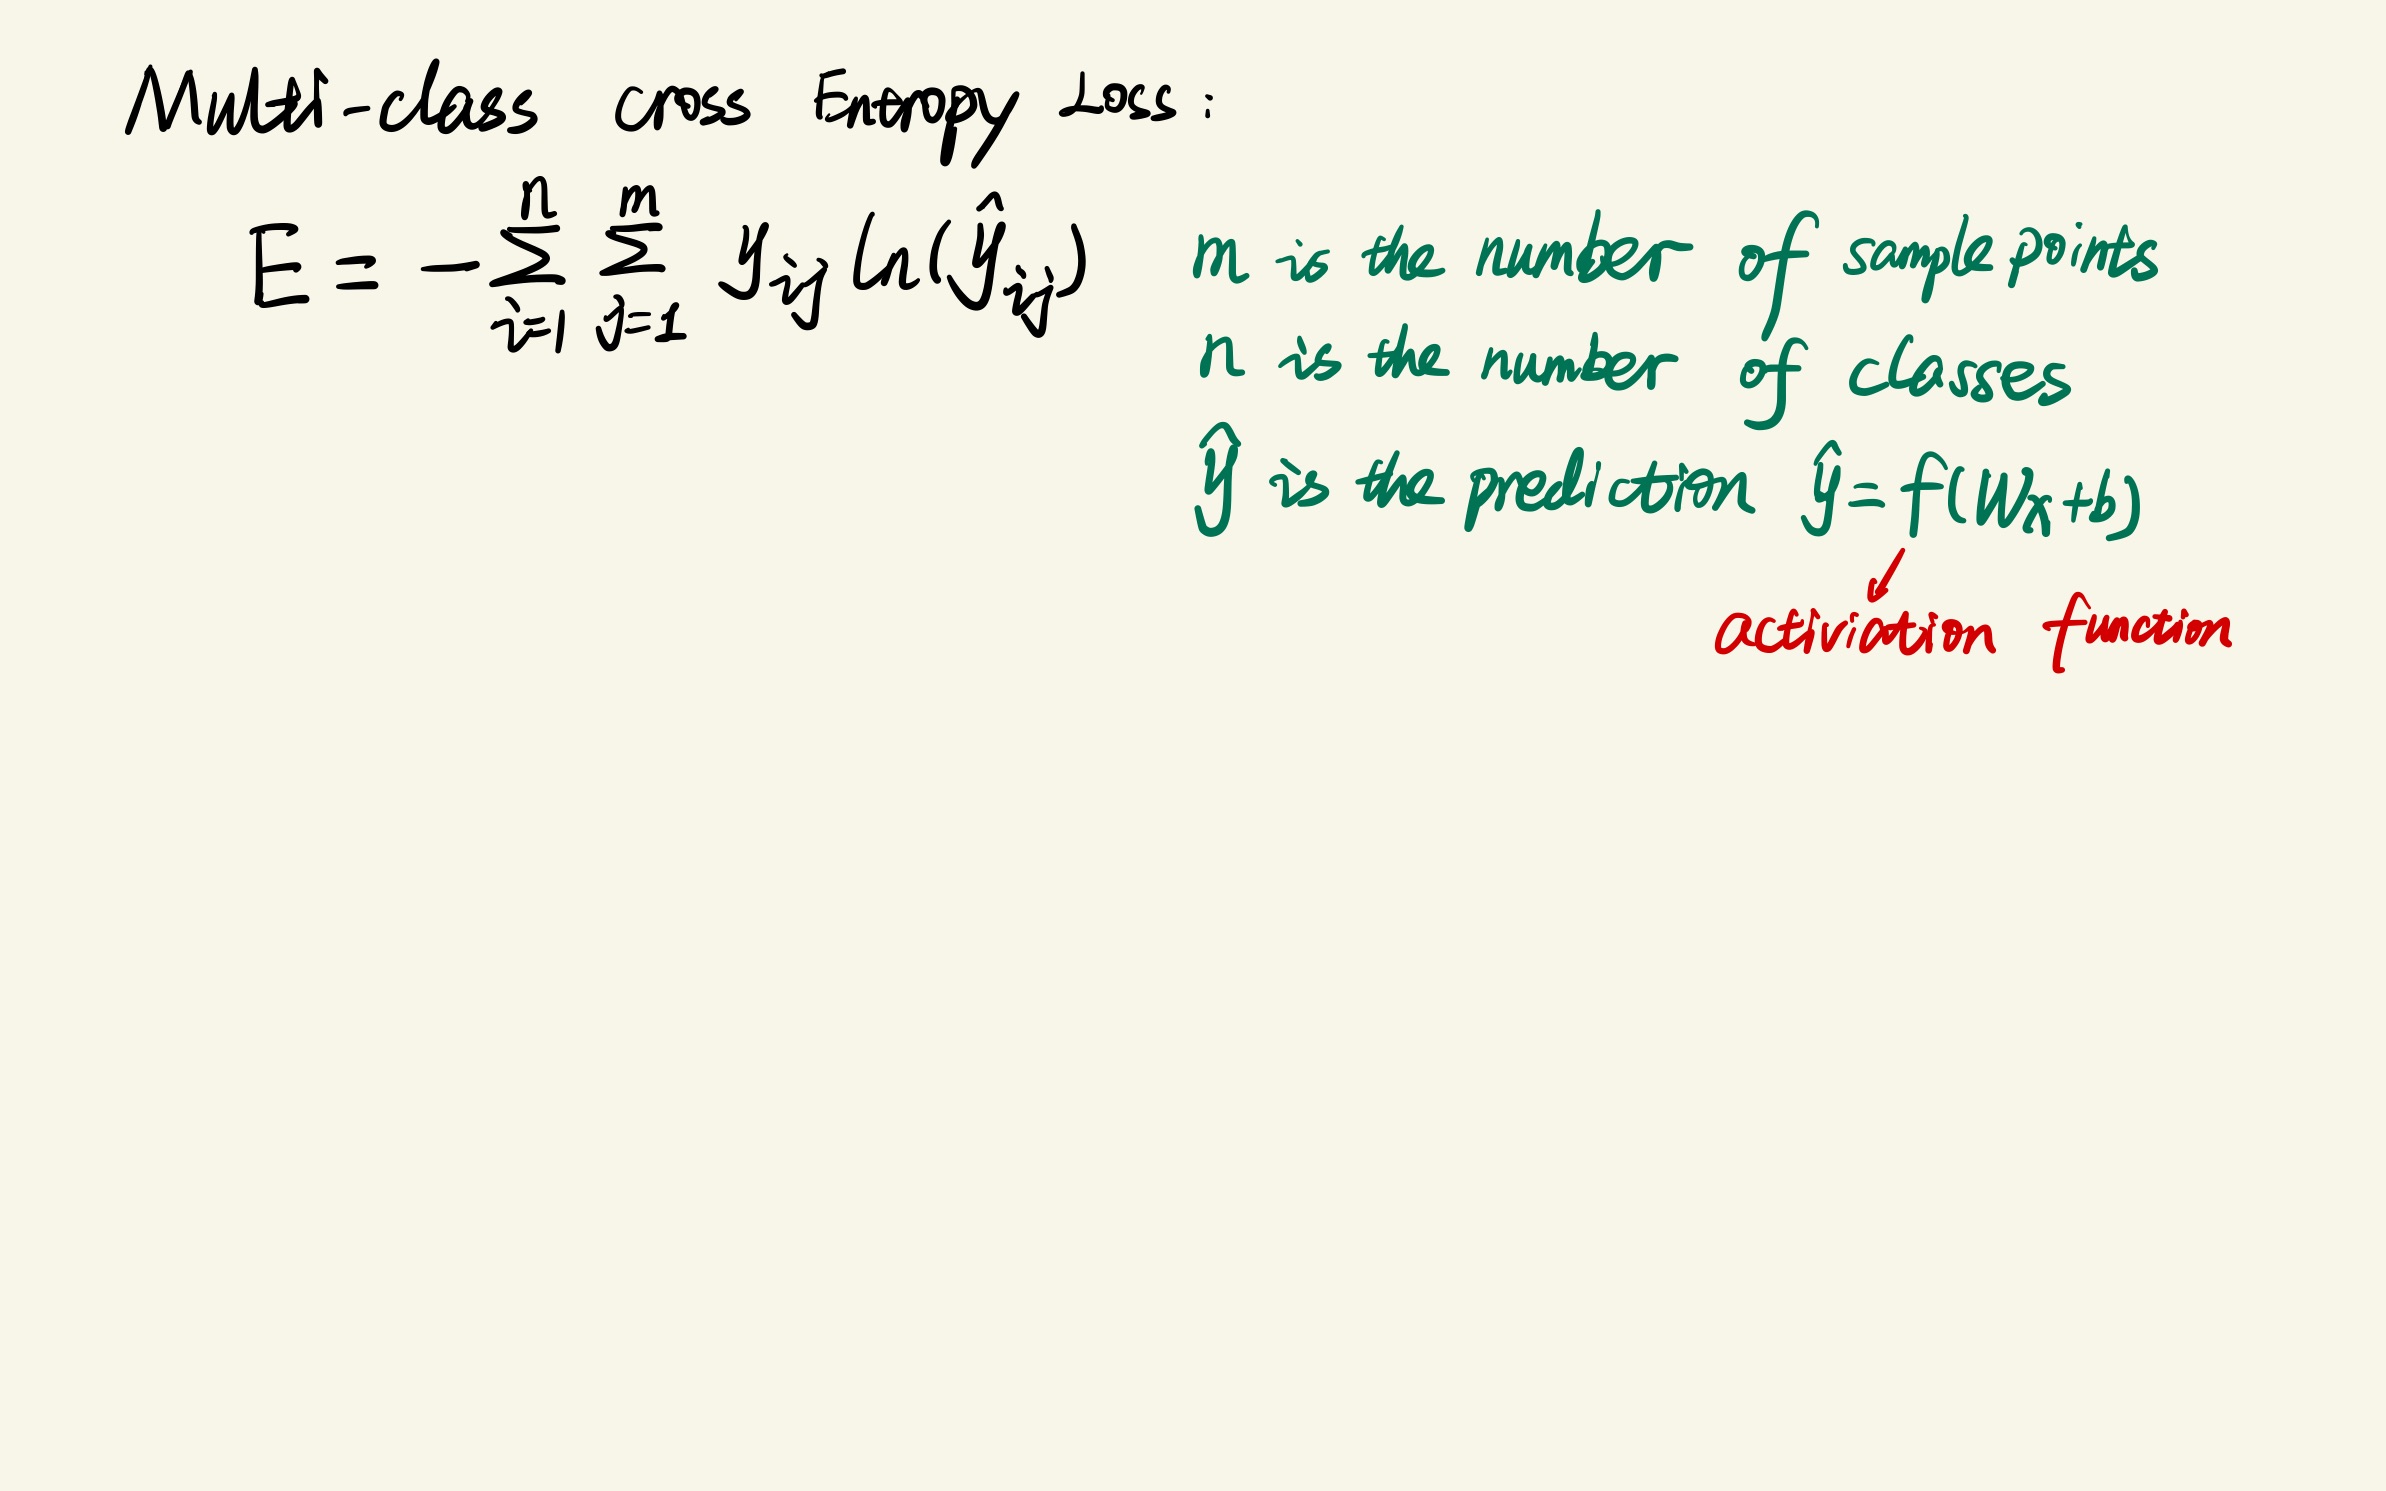 Multi-class cross Entropy Loss:
E = -∑_{i=1}^{n} ∑_{j=1}^{m} y_{ij} ln(ŷ_{ij})
m is the number of sample points
n is the number of classes
ŷ is the prediction ŷ=f(Wx+b)
activiation function